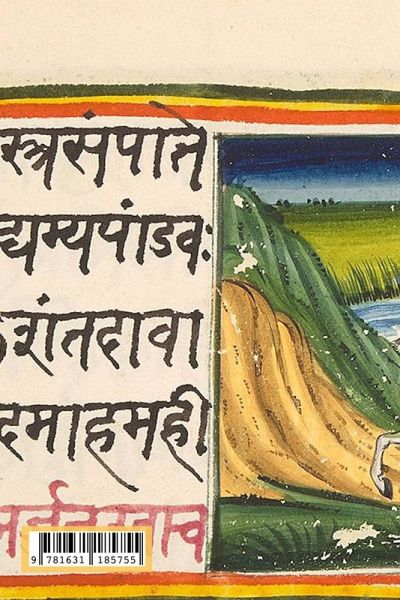 स्त्रसंपाते
द्यम्यपांडवः
शंतदावा
दमाहमही
9 781631 185755